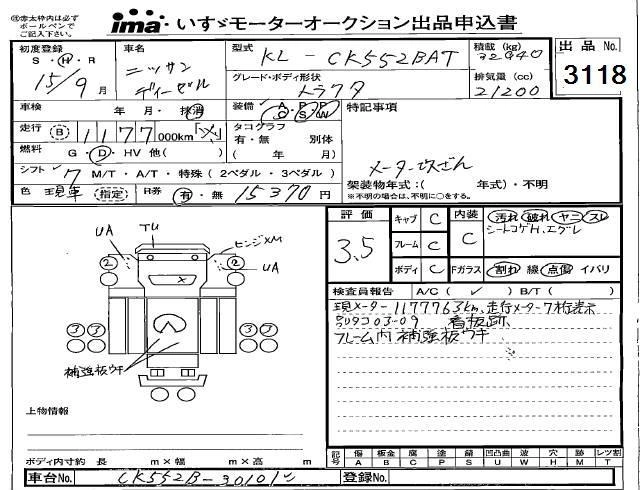 ㊟赤太枠内は必ず
ボールペンで
ご記入下さい。
ima いすゞモーターオークション出品申込書
初度登録
S・H・R
15/9 月
車名
ニッサン
ディーゼル
型式
KL-CK552BAT
積載(kg)
出品No.
3118
グレード・ボディ形状
トラクタ
排気量(cc)
21200
車検
年・月・抹消
装備
特記事項
走行
B 1177 000km
タコグラフ
有・無 別体
( 年 月)
燃料
G・D・HV 他( )
シフト 7 M/T・A/T・特殊(2ペダル・3ペダル)
メーター改ざん
架装物年式:( 年式)・不明
※不明の場合は、不明に○をする。
色 現車 (指定)
R券 有・無 15370円
評価
3.5
キャブ C
フレーム C
ボディ C
内装
C
汚れ 破れ ヤニ スレ
シートコゲH.エグレ
Fガラス 割れ 線 点傷 イバリ
検査員報告 A/C( ✓ ) B/T( )
現メーター1177763km.走行メーター7桁表示
03-09 看板跡
フレーム内補強板ウキ
UA
TU
ヒンジXM
UA
2
2
X
3 3
3 3
補強板ウキ
上物情報
ボディ内寸約 長 m×幅 m×高 m
記号
傷 A
板金 B
腐 C
塗 P
錆 S
凹凸曲 U
波 W
穴 H
跡 M
レツ割 T
車台No.
CK552B-30101
登録No.